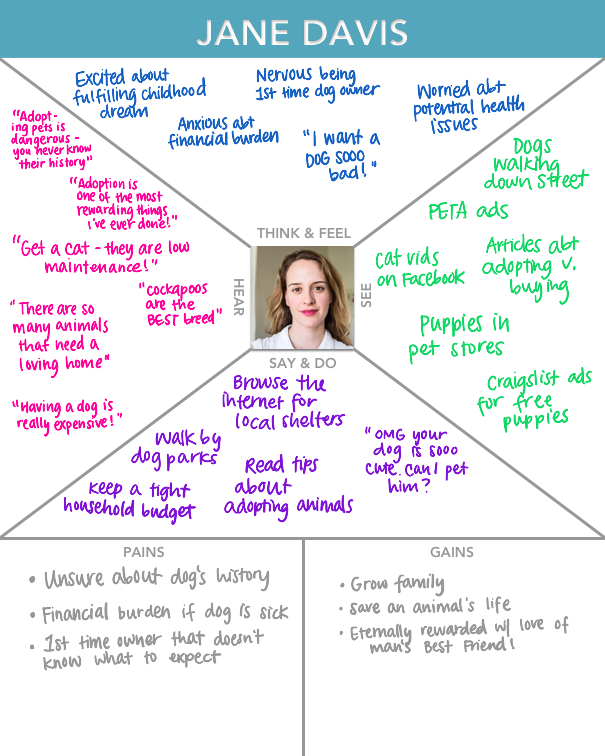 JANE DAVIS
Excited about
fulfilling childhood
dream
Nervous being
1st time dog owner
Worried abt
potential health
issues
Anxious abt
financial burden
"I want a
DOG SOOO
bad!"
THINK & FEEL
"Adopt-
ing pets is
dangerous -
you never know
their history"
"Adoption is
one of the most
rewarding things
i've ever done!"
"Get a cat - they are low
maintenance!"
"cockapoos
are the
BEST breed"
"There are so
many animals
that need a
loving home"
"Having a dog is
really expensive!"
HEAR
SEE
Dogs
walking
down street
PETA ads
cat vids
on Facebook
Articles abt
adopting v.
buying
Puppies in
pet stores
Craigslist ads
for free
puppies
SAY & DO
Browse the
internet for
local shelters
Walk by
dog parks
Read tips
about
adopting animals
"OMG your
dog is sooo
cute. Can I pet
him?
Keep a tight
household budget
PAINS
• Unsure about dog's history
• Financial burden if dog is sick
• 1st time owner that doesn't
know what to expect
GAINS
• Grow family
• save an animal's life
• Eternally rewarded w/ love of
man's Best Friend!